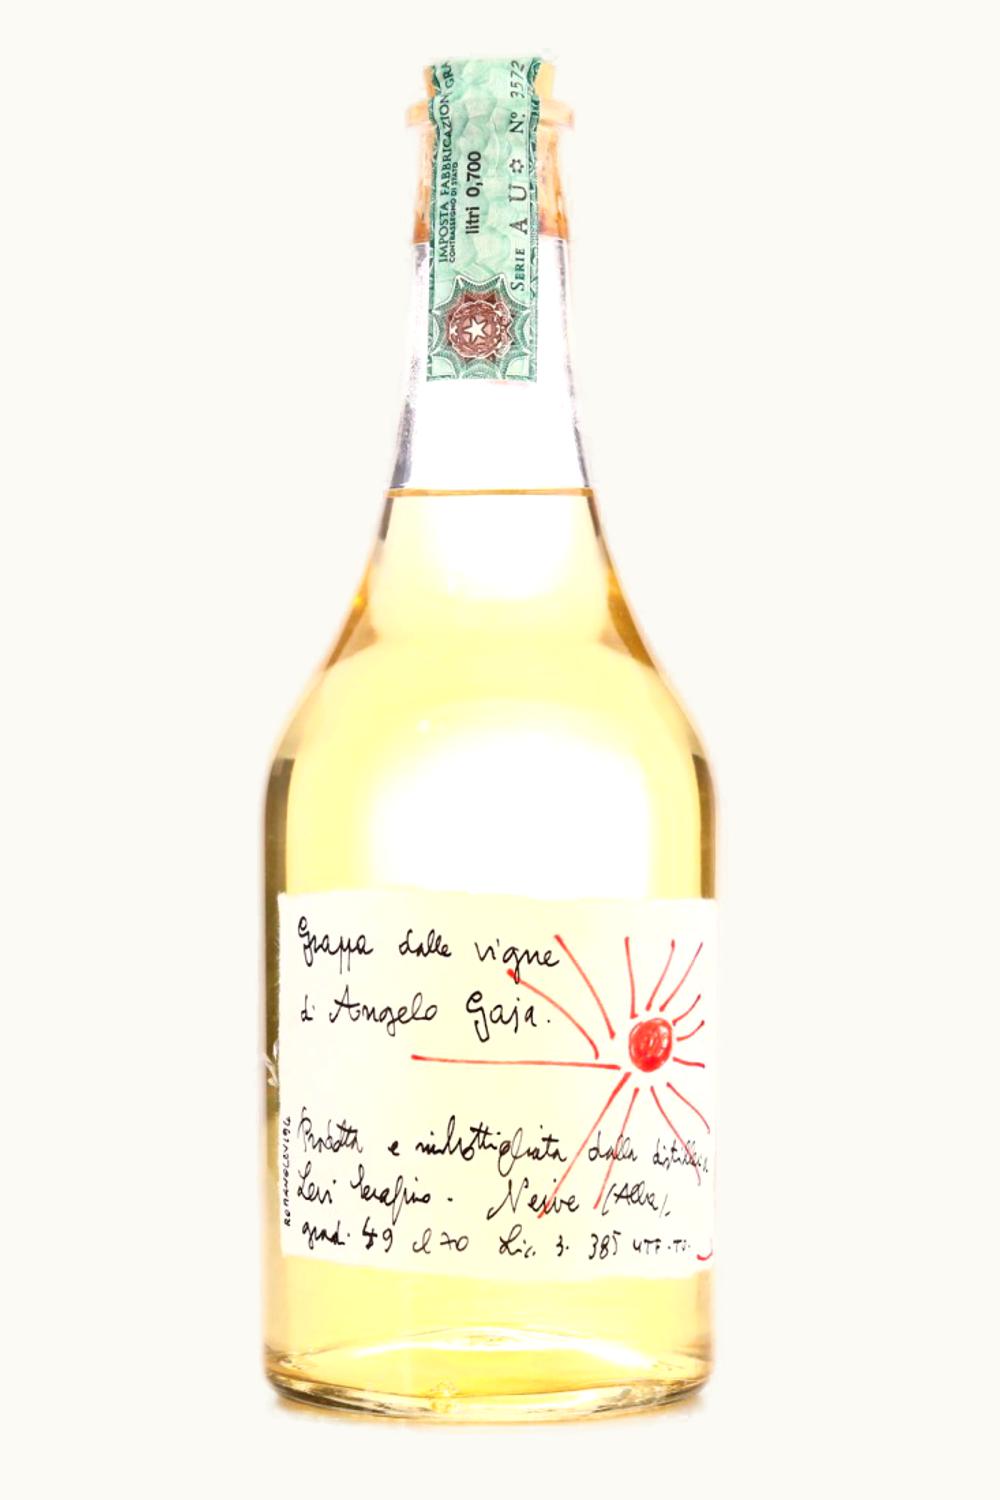 IMPOSTA FABBRICAZION GRA
CONTRASSEGNO DI STATO
litri 0,700
SERIE AU N° 3572
Grappa dalle vigne
di Angelo Gaja.
Prodotta e imbottigliata dalla distilleria
Levi Serafino. Neive (Alba).
grad. 49 cl 70 Lic. 3. 385 UTF.TO.